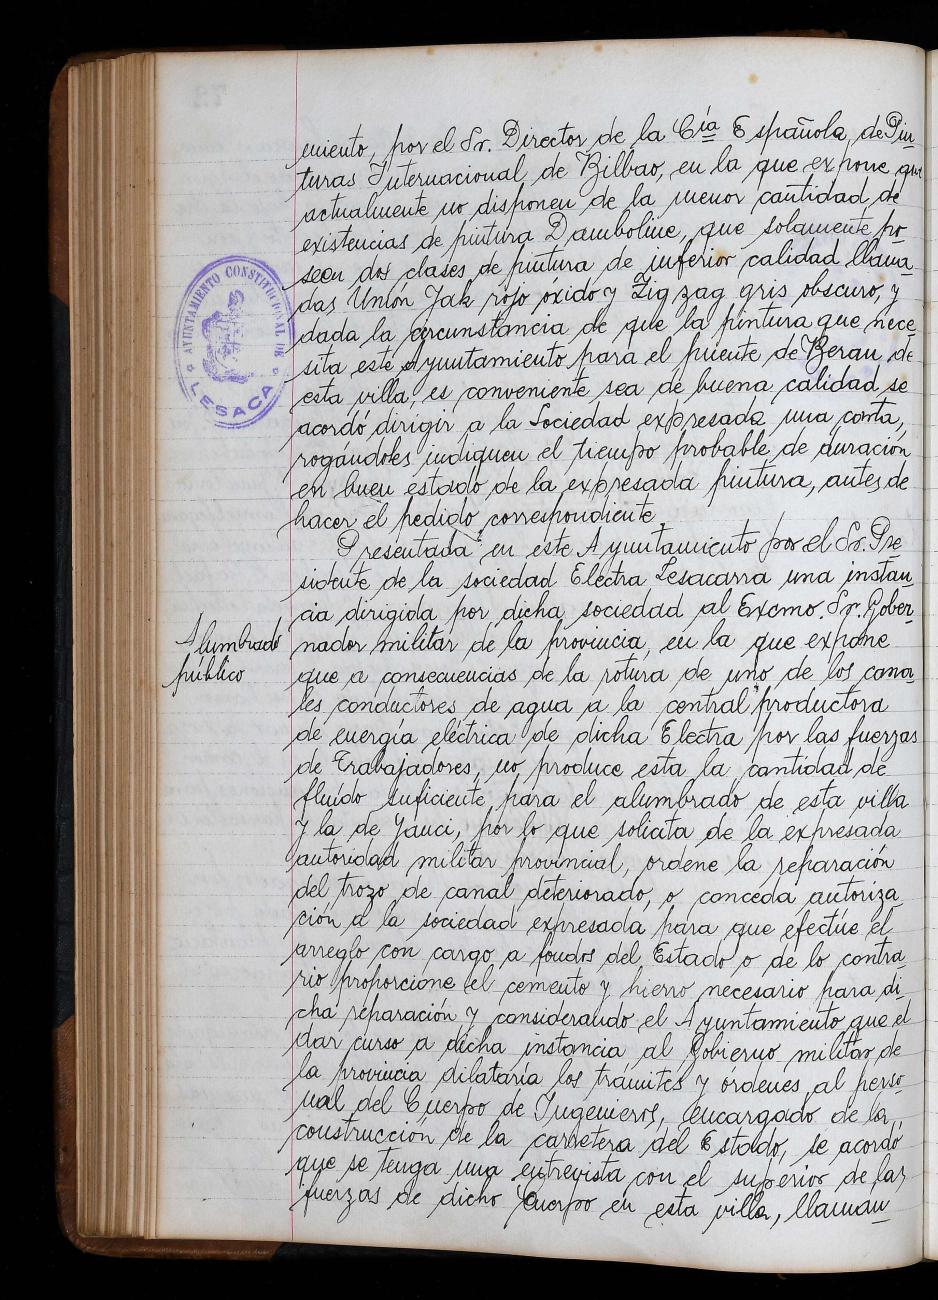 miento, por el Sr. Director de la Cía Española, de Pin
turas Internacional de Bilbao, en la que expone que
actualmente no disponen de la menor cantidad de
existencias de pintura Damboline, que solamente po
seen dos clases de pintura de inferior calidad llama
das Unión Jak rojo óxido y Zig zag gris obscuro, y
dada la circunstancia de que la pintura que nece
sita este Ayuntamiento para el puente de Berau de
esta villa, es conveniente sea de buena calidad se
acordó dirigir a la Sociedad expresada una carta,
rogándoles indiquen el tiempo probable de duración
en buen estado de la expresada pintura, antes de
hacer el pedido correspondiente.
AYUNTAMIENTO CONSTITUCIONAL DE
LESACA
Presentada en este Ayuntamiento por el Sr. Pre
sidente de la sociedad Electra Lesacarra una instan
cia dirigida por dicha sociedad al Excmo. Sr. Gober
Alumbrado
público
nador militar de la provincia, en la que expone
que a consecuencias de la rotura de uno de los cana
les conductores de agua a la central productora
de energía eléctrica de dicha Electra por las fuerzas
de Trabajadores, no produce esta la cantidad de
fluído suficiente, para el alumbrado de esta villa
y la de Yanci, por lo que solicita de la expresada
autoridad militar provincial, ordene la reparación
del trozo de canal deteriorado, o conceda autoriza
ción a la sociedad expresada para que efectúe el
arreglo con cargo a fondos del Estado o de lo contra
rio proporcione el cemento y hierro necesario para di
cha reparación y considerando el Ayuntamiento que el
dar curso a dicha instancia al Gobierno militar de
la provincia dilataría los trámites y órdenes, al perso
nal del Cuerpo de Ingenieros, encargado de la
construcción de la carretera del Estado, se acordó
que se tenga una entrevista con el superior de las
fuerzas de dicho Cuerpo en esta villa, llaman